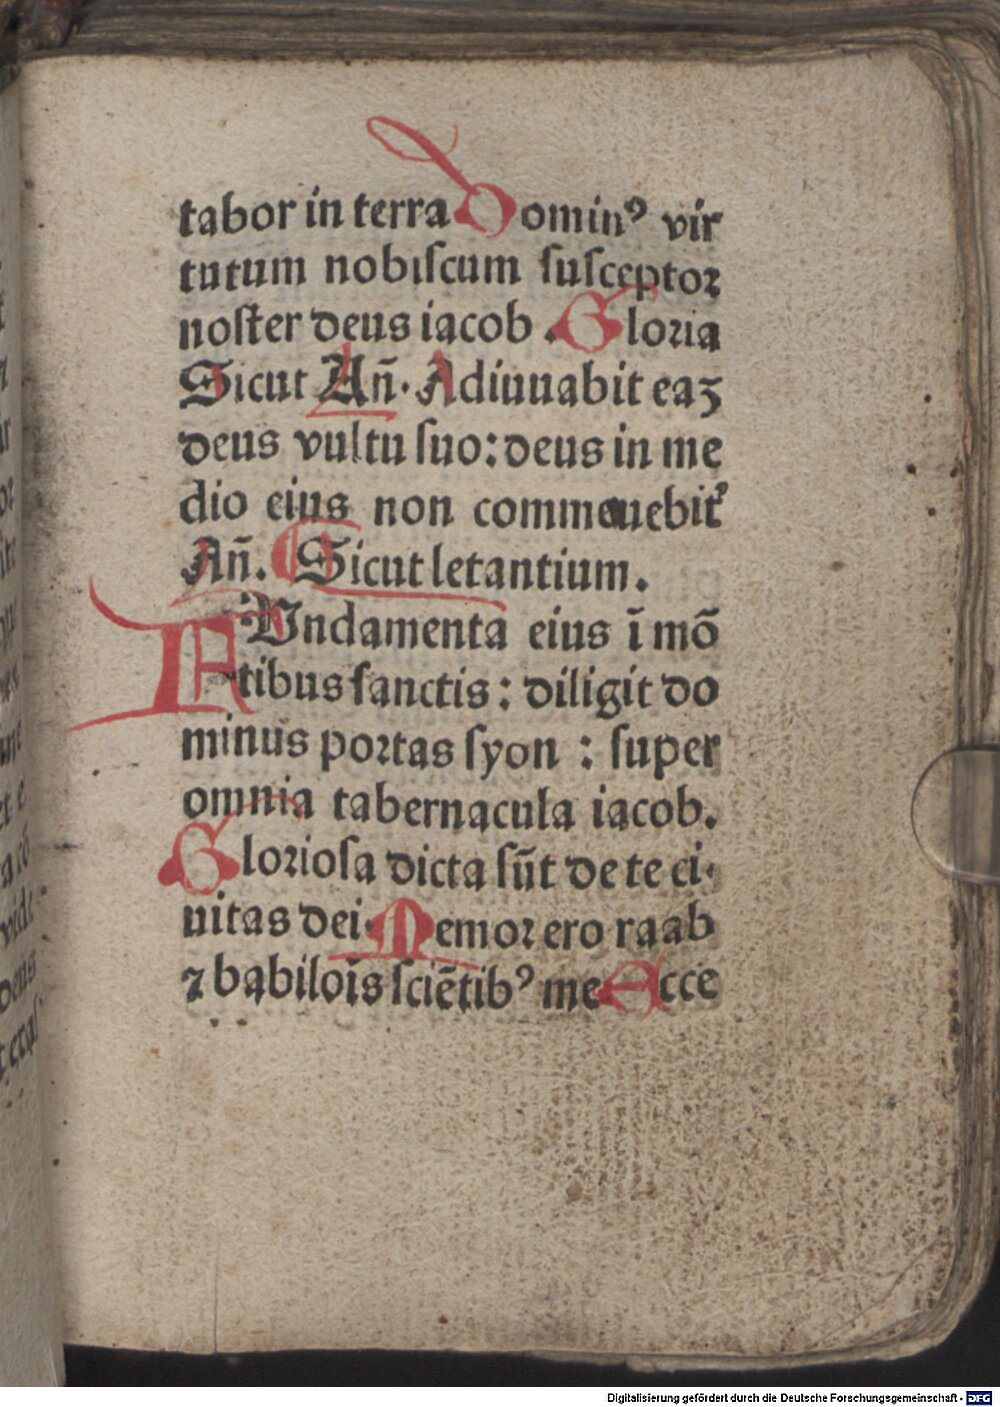 tabor in terra Dominꝰ vir
tutum nobiſcum ſuſceptoꝛ
noſter deus iacob. Gloꝛia
Sicut Añ. Adiuuabit eaꝫ
deus vultu ſuo: deus in me
dio eius non commouebit᷑
Añ. Sicut letantium.
FUndamenta eius ī mō
tibus ſanctis: diligit do
minus poꝛtas ſyon : ſuper
omnia tabernacula iacob.
Gloꝛioſa dicta ſūt de te ci⸗
uitas dei. Memoꝛ ero raab
⁊ babiloīs ſciētibꝰ me Ecce
Digitalisierung gefördert durch die Deutsche Forschungsgemeinschaft - DFG